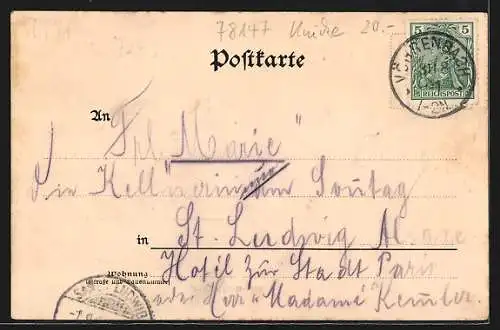 78147 Kinder 20.-
Postkarte
5 5
REICHSPOST
VÖHRENBACH
1-2N
An
Frl. "Marie"
die Kellnerin am Sonntag
in St. Ludwig Alsace
Wohnung
(Straße und Hausnummer)
Hotel zur Stadt Paris
oder Herr "Madame" Kembler.